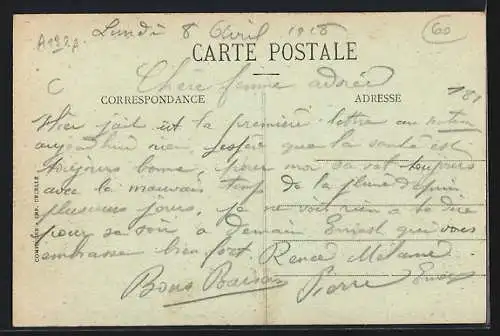 A192A
Lundi 8 Avril 1918
60
CARTE POSTALE
Chère femme adorée
CORRESPONDANCE
ADRESSE
181
C
Hier jait ut ta première lettre au matin
aujourdhui rien, jespére que la santé est
toujours bonne, pour moi sa vat toujours
avec la mauvais temp de la pluie depuis
plusieurs jours, je ne voit rien a te dire
pour se soir à demain Ernest qui vous
embrasse bien fort Renée Mélanie
Bons Baisers Pierre Ernest